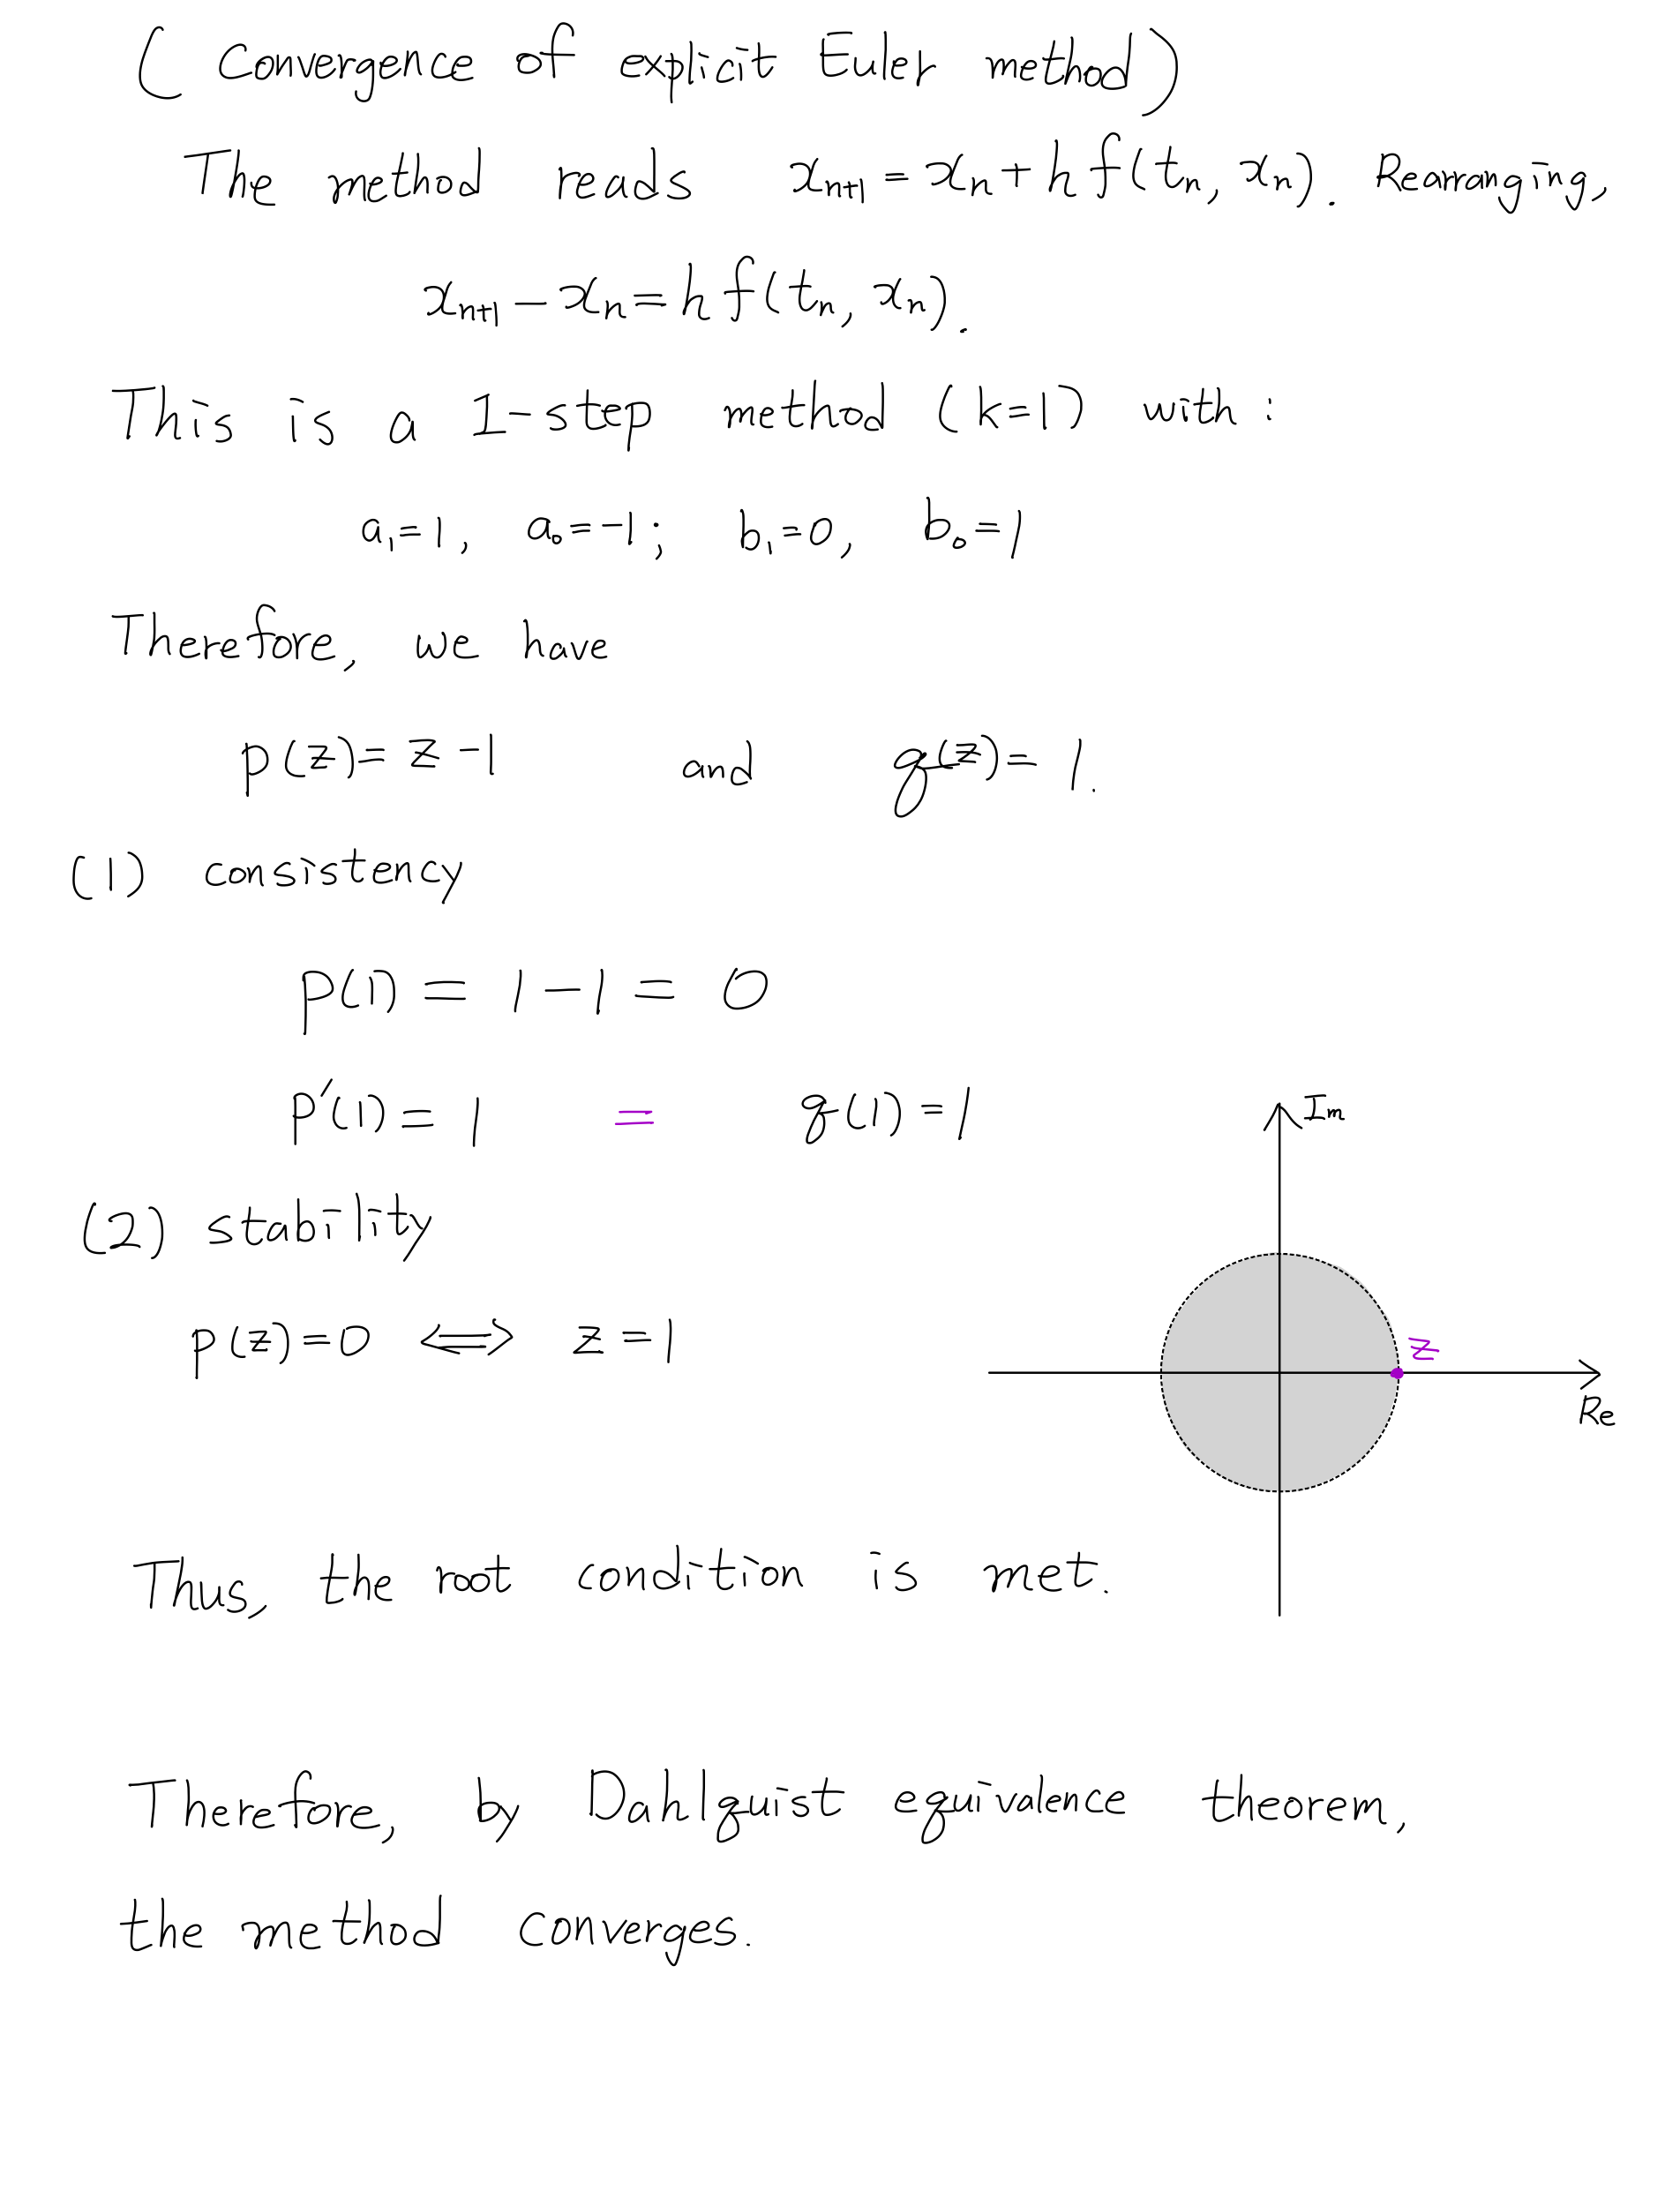 ( Convergence of explicit Euler method )
The method reads xₙ₊₁ = xₙ + h f(tₙ, xₙ). Rearranging,
xₙ₊₁ − xₙ = h f(tₙ, xₙ).
This is a 1-step method (k=1) with :
a₁=1, a₀=−1; b₁=0, b₀=1
Therefore, we have
p(z)= z −1 and q(z)= 1.
(1) consistency
p(1) = 1 − 1 = 0
p′(1) = 1 = q(1) = 1
Im
(2) stability
p(z)=0 ⟺ z = 1
z
Re
Thus, the root condition is met.
Therefore, by Dahlquist equivalence theorem,
the method converges.